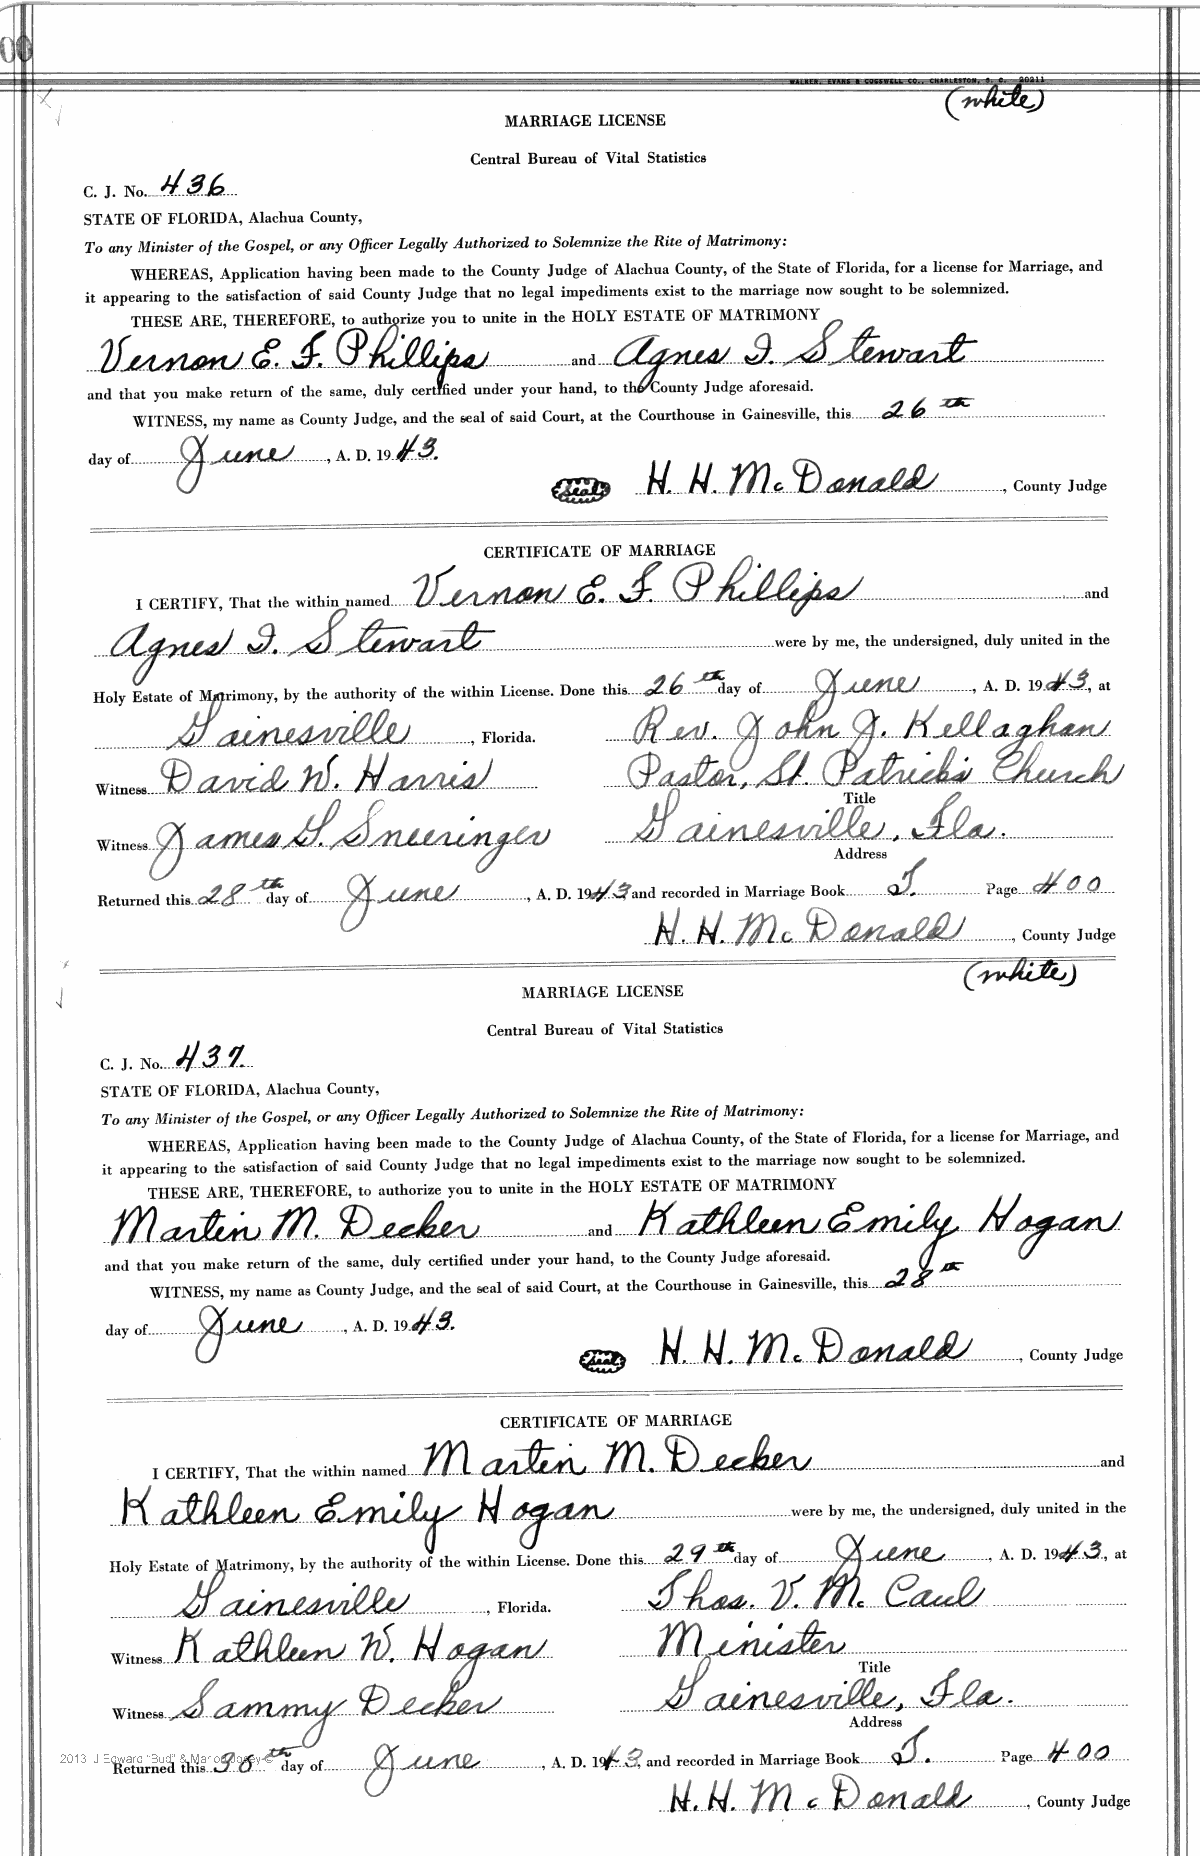 00
WALKER, EVANS & COGSWELL CO., CHARLESTON, S. C. 20211
(white)
MARRIAGE LICENSE
Central Bureau of Vital Statistics
C. J. No. 436
STATE OF FLORIDA, Alachua County,
To any Minister of the Gospel, or any Officer Legally Authorized to Solemnize the Rite of Matrimony:
WHEREAS, Application having been made to the County Judge of Alachua County, of the State of Florida, for a license for Marriage, and
it appearing to the satisfaction of said County Judge that no legal impediments exist to the marriage now sought to be solemnized.
THESE ARE, THEREFORE, to authorize you to unite in the HOLY ESTATE OF MATRIMONY
Vernon E. F. Phillips and Agnes I. Stewart
and that you make return of the same, duly certified under your hand, to the County Judge aforesaid.
WITNESS, my name as County Judge, and the seal of said Court, at the Courthouse in Gainesville, this 26th
day of June, A. D. 1943.
Seal H. H. McDonald, County Judge
CERTIFICATE OF MARRIAGE
I CERTIFY, That the within named Vernon E. F. Phillips and
Agnes I. Stewart were by me, the undersigned, duly united in the
Holy Estate of Matrimony, by the authority of the within License. Done this 26th day of June, A. D. 1943, at
Gainesville, Florida. Rev. John J. Kellaghan
Witness David W. Harris Pastor, St. Patrick's Church
Title
Witness James G. Sneeringer Gainesville, Fla.
Address
Returned this 28th day of June, A. D. 1943, and recorded in Marriage Book T. Page 400
H. H. McDonald, County Judge
(white)
MARRIAGE LICENSE
Central Bureau of Vital Statistics
C. J. No. 437.
STATE OF FLORIDA, Alachua County,
To any Minister of the Gospel, or any Officer Legally Authorized to Solemnize the Rite of Matrimony:
WHEREAS, Application having been made to the County Judge of Alachua County, of the State of Florida, for a license for Marriage, and
it appearing to the satisfaction of said County Judge that no legal impediments exist to the marriage now sought to be solemnized.
THESE ARE, THEREFORE, to authorize you to unite in the HOLY ESTATE OF MATRIMONY
Martin M. Decker and Kathleen Emily Hogan
and that you make return of the same, duly certified under your hand, to the County Judge aforesaid.
WITNESS, my name as County Judge, and the seal of said Court, at the Courthouse in Gainesville, this 28th
day of June, A. D. 1943.
Seal H. H. McDonald, County Judge
CERTIFICATE OF MARRIAGE
I CERTIFY, That the within named Martin M. Decker and
Kathleen Emily Hogan were by me, the undersigned, duly united in the
Holy Estate of Matrimony, by the authority of the within License. Done this 29th day of June, A. D. 1943, at
Gainesville, Florida. Thos. V. McCaul
Witness Kathleen W. Hogan Minister
Title
Witness Sammy Decker Gainesville, Fla.
Address
2013 J Edward "Bud" &
Returned this 30th day of June, A. D. 1943, and recorded in Marriage Book T. Page 400
H. H. McDonald, County Judge